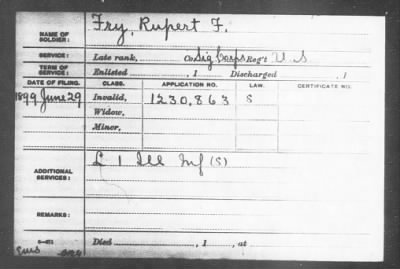 NAME OF SOLDIER: Fry, Rupert F.
SERVICE: Late rank, Co. Sig Corps Reg't U S
TERM OF SERVICE: Enlisted , 1 Discharged , 1
DATE OF FILING. CLASS. APPLICATION NO. LAW. CERTIFICATE NO.
1899 June 29 Invalid, 1230,863 S
Widow,
Minor,
ADDITIONAL SERVICES: L 1 Ill Inf (S)
REMARKS:
Died , 1 , at